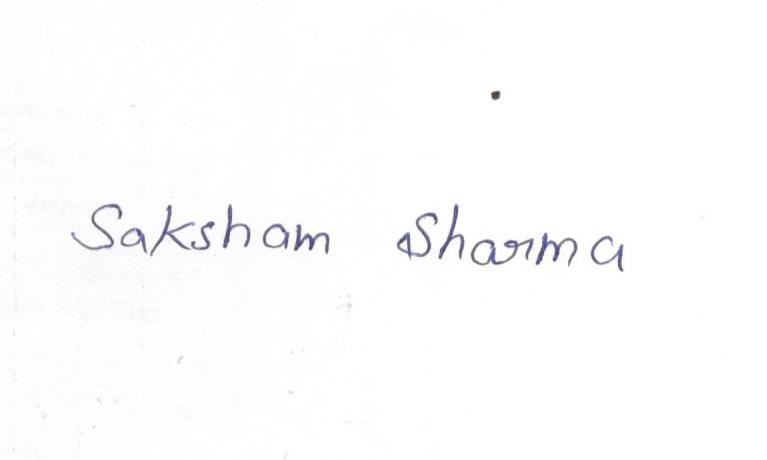 Saksham Sharma